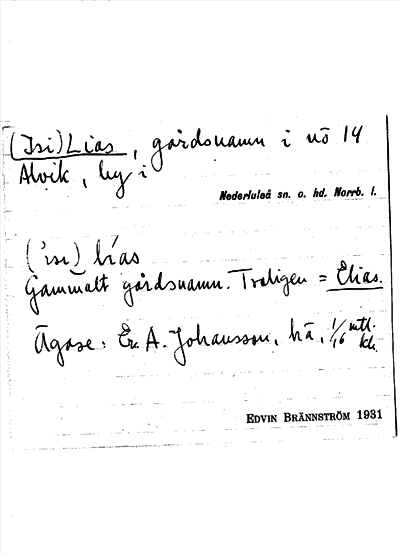 (Isi)Lias, gårdsnamn i nö 14
Alvik, by i
Nederluleå sn. o. hd. Norrb. l.
('isi) lías
Gammalt gårdsnamn. Troligen = Elias.
Ägare: Er. A. Johansson, hä, 1/16 mtl.
EDVIN BRÄNNSTRÖM 1931